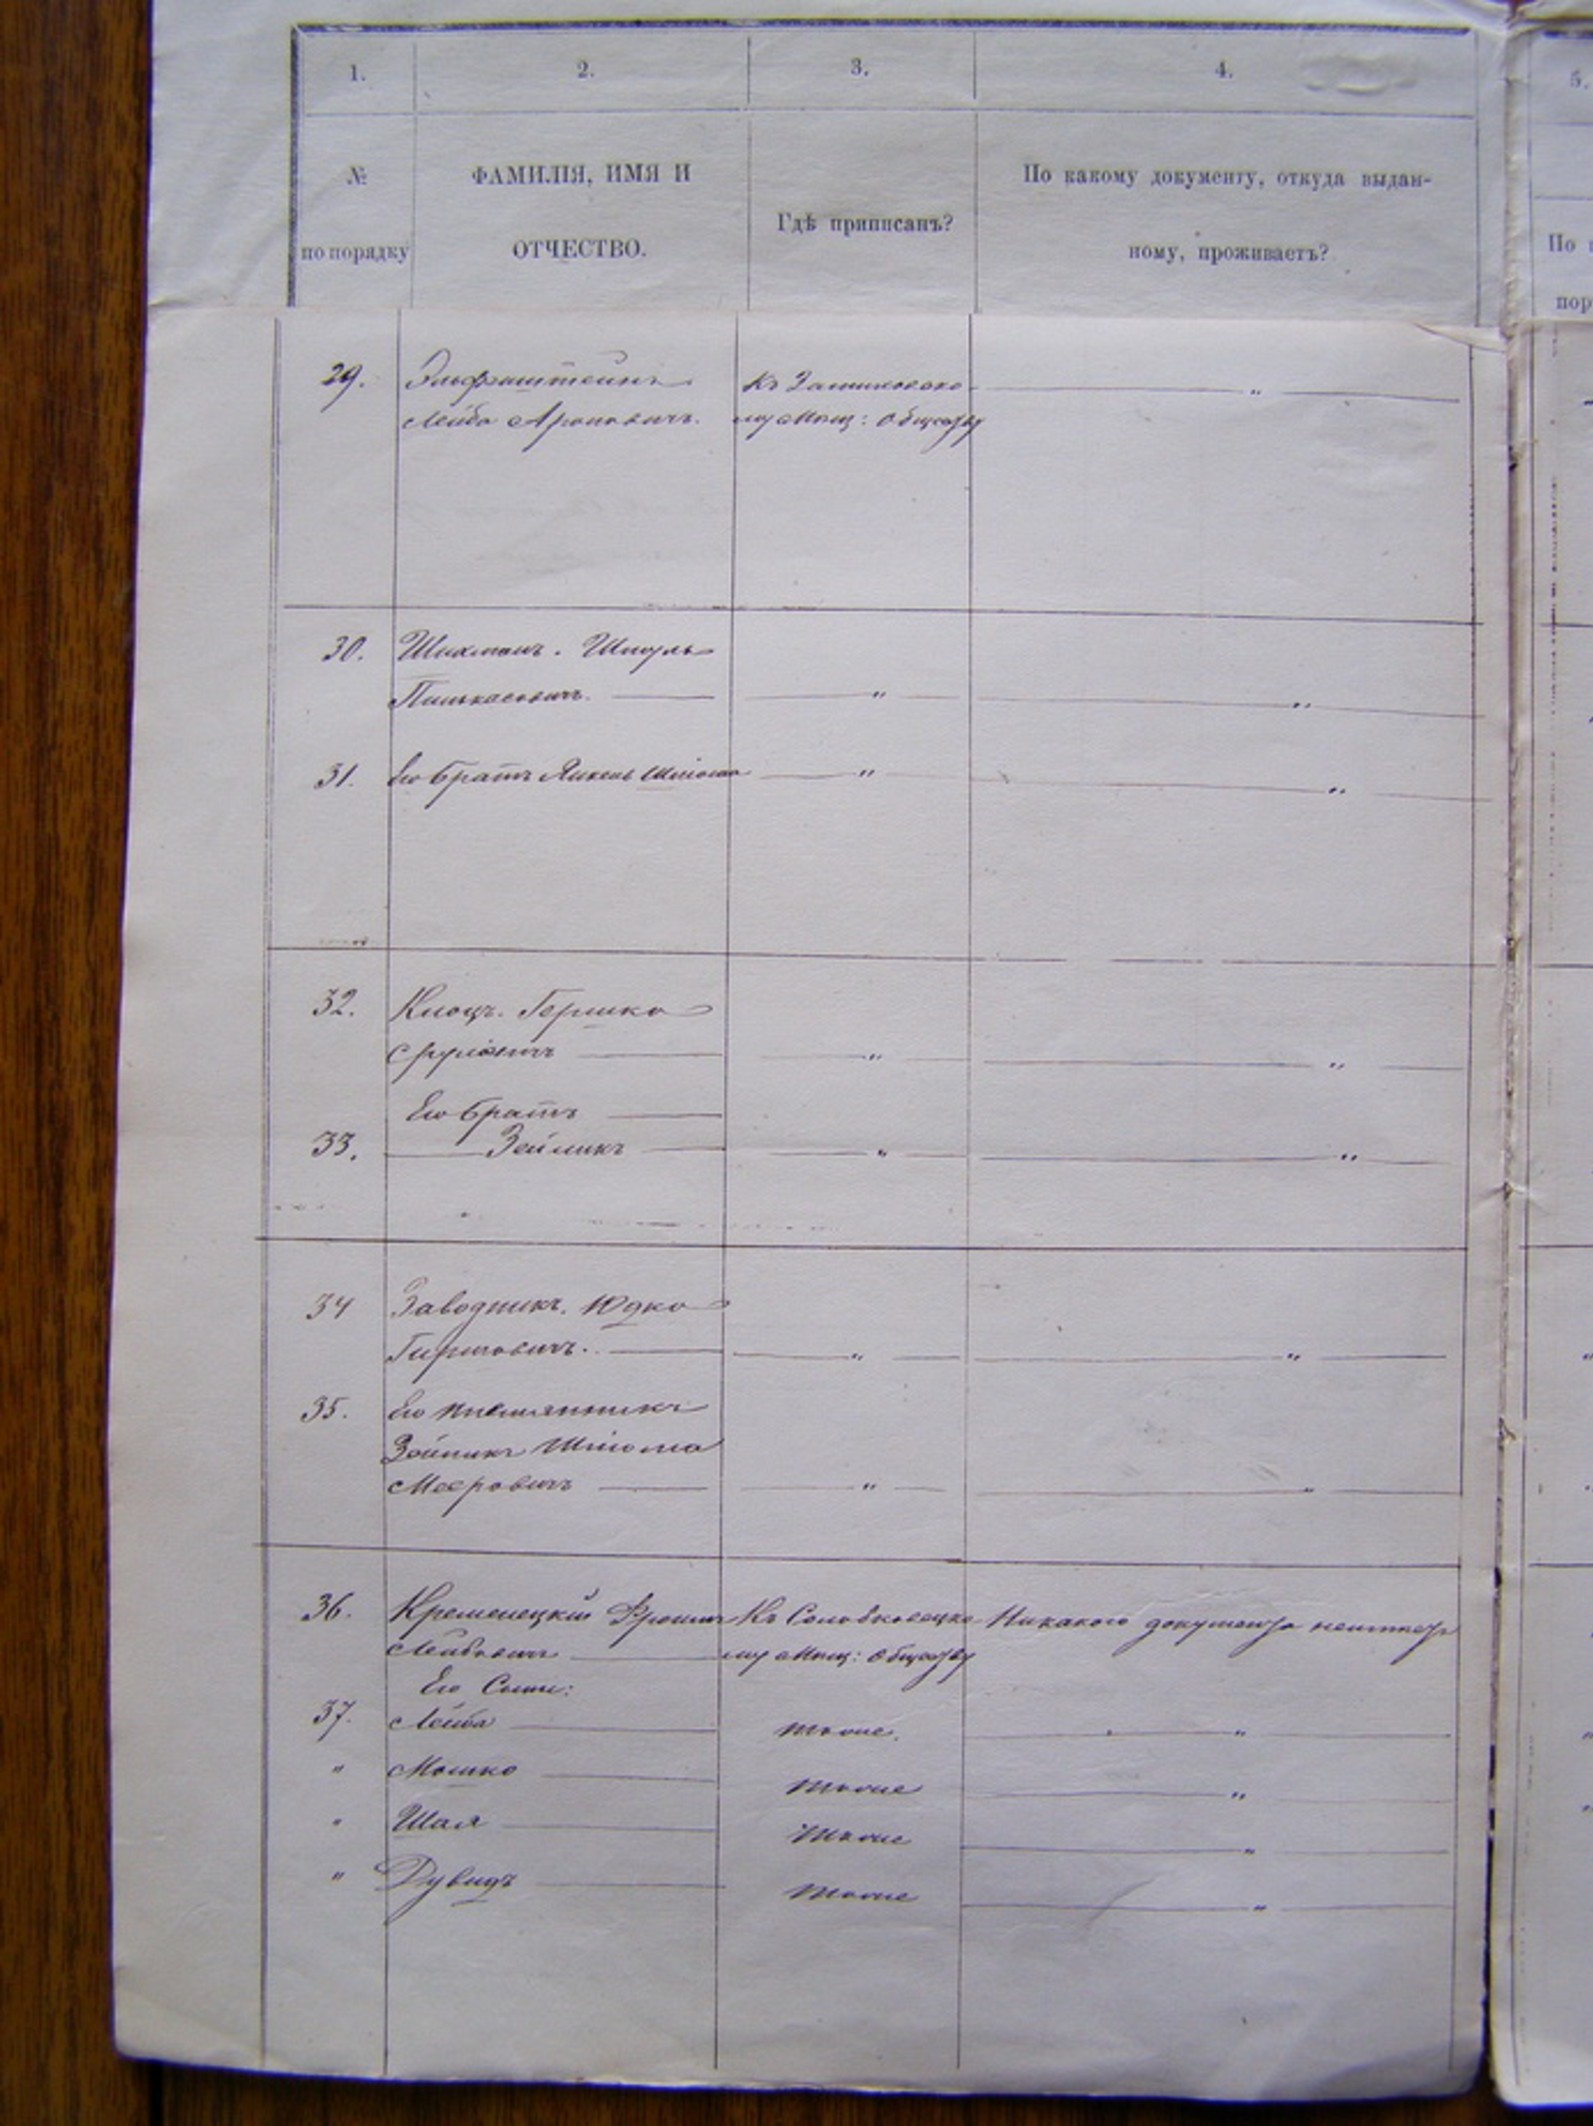 1. 2. 3. 4. 5.
№ ФАМИЛІЯ, ИМЯ И По какому документу, откуда выдан-
Гдѣ приписанъ?
по порядку ОТЧЕСТВО. ному, проживаетъ?
29. Къ
Лейба Ароновичъ. му Мѣщ: Обществу "
30. Шихманъ. Шмуль
Пинькасовичъ. " "
31. Его братъ Янкель Шлiома " "
32. Клоцъ. Гершко
Сруліовичъ " "
Его братъ
33. Зейликъ " "
34 Заводникъ. Юдко
Гершовичъ. " "
35. Его племянникъ
Зейликъ Шліома
Мееровичъ " "
36. Кременецкій Фроимъ Къ Солобковецко Никакого документа неимѣетъ
Лейбовичъ му Мѣщ: Обществу
Его Сыны:
37. Лейба тоже. "
" Мошко тоже "
" Шая тоже "
" Дувидъ тоже "